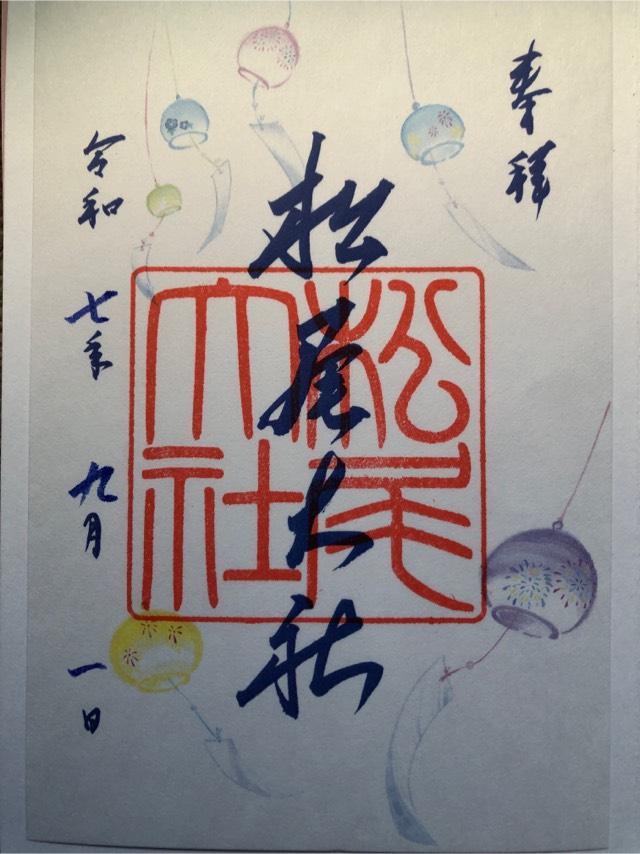 奉拝
松尾大社
松尾大社
令和 七年 九月 一日